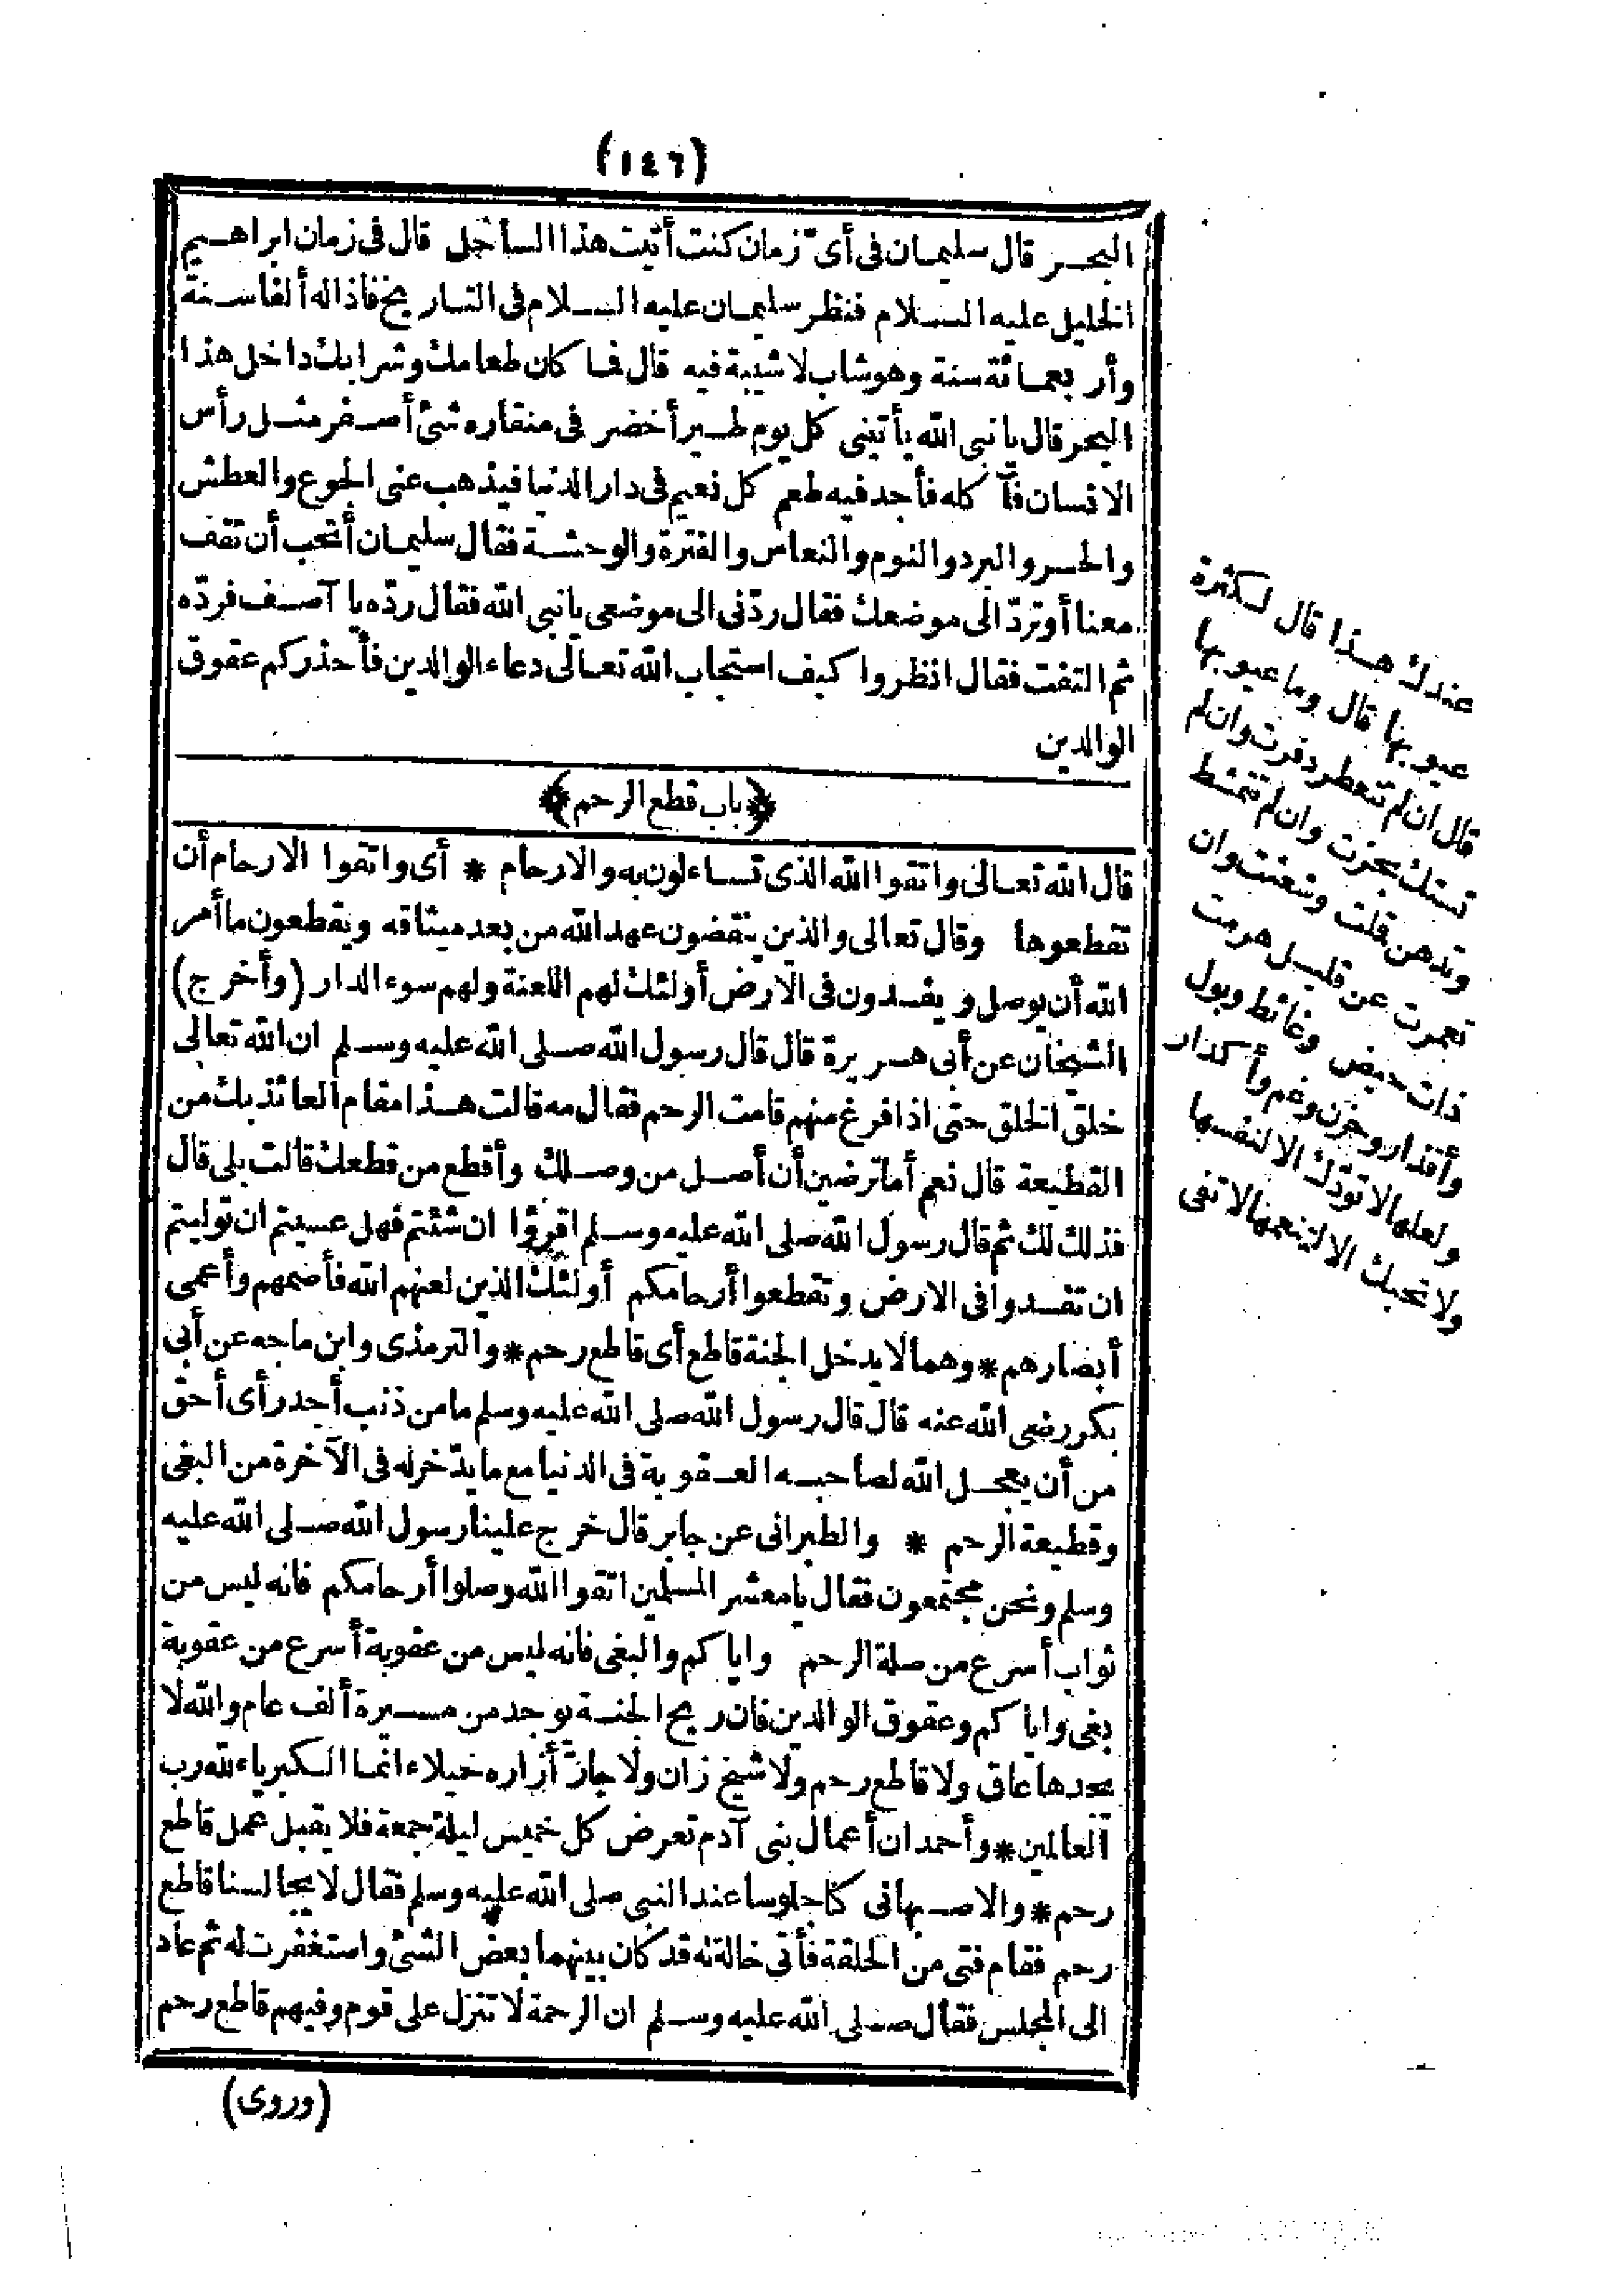 (١٤٦)
البحر قال سليمان فى أى زمان كنت أتيت هذا الساحل قال فى زمان ابراهيم
الخليل عليه السلام فنظر سليمان عليه السلام فى التاريخ فاذا له ألفا سنة
وأربعمائة سنة وهو شاب لا شيبة فيه قال فما كان طعامك وشرابك داخل هذا
البحر قال يا نبى الله يأتينى كل يوم طير أخضر فى منقاره شئ أصفر مثل رأس
الانسان فآكله فأجد فيه طعم كل نعيم فى دار الدنيا فيذهب عنى الجوع والعطش
والحر والبرد والنوم والنعاس والفترة والوحشة فقال سليمان أتحب أن تقف
معنا أو تردّ الى موضعك فقال ردّنى الى موضعى يا نبى الله فقال ردّه يا آصف فردّه
ثم التفت فقال انظروا كيف استجاب الله تعالى دعاء الوالدين فأحذركم عقوق
الوالدين
﴿باب قطع الرحم﴾
قال الله تعالى واتقوا الله الذى تساءلون به والارحام * أى واتقوا الارحام أن
تقطعوها وقال تعالى والذين ينقضون عهد الله من بعد ميثاقه ويقطعون ما أمر
الله أن يوصل ويفسدون فى الارض أولئك لهم اللعنة ولهم سوء الدار (وأخرج)
الشيخان عن أبى هريرة قال قال رسول الله صلى الله عليه وسلم ان الله تعالى
خلق الخلق حتى اذا فرغ منهم قامت الرحم فقال مه قالت هذا مقام العائذ بك من
القطيعة قال نعم أما ترضين أن أصل من وصلك وأقطع من قطعك قالت بلى قال
فذلك لك ثم قال رسول الله صلى الله عليه وسلم اقرؤا ان شئتم فهل عسيتم ان توليتم
ان تفسدوا فى الارض وتقطعوا أرحامكم أولئك الذين لعنهم الله فأصمهم وأعمى
أبصارهم * وهما لا يدخل الجنة قاطع أى قاطع رحم * والترمذى وابن ماجه عن أبى
بكر رضى الله عنه قال قال رسول الله صلى الله عليه وسلم ما من ذنب أجدر أى أحق
من أن يعجل الله لصاحبه العقوبة فى الدنيا مع ما يدّخر له فى الآخرة من البغى
وقطيعة الرحم * والطبرانى عن جابر قال خرج علينا رسول الله صلى الله عليه
وسلم ونحن مجتمعون فقال يا معشر المسلمين اتقوا الله وصلوا أرحامكم فانه ليس من
ثواب أسرع من صلة الرحم واياكم والبغى فانه ليس من عقوبة أسرع من عقوبة
بغى واياكم وعقوق الوالدين فان ريح الجنة يوجد من مسيرة ألف عام والله لا
يجدها عاق ولا قاطع رحم ولا شيخ زان ولا جارّ أزاره خيلاء انما الكبرياء لله رب
العالمين * وأحمد ان أعمال بنى آدم تعرض كل خميس ليلة جمعة فلا يقبل عمل قاطع
رحم * والاصبهانى كنا جلوسا عند النبى صلى الله عليه وسلم فقال لا يجالسنا قاطع
رحم فقام فتى من الحلقة فأتى خالة له قد كان بينهما بعض الشئ واستغفرت له ثم عاد
الى المجلس فقال صلى الله عليه وسلم ان الرحمة لا تنزل على قوم وفيهم قاطع رحم
(وروى)
عندك هذا قال لكثرة
عيوبها قال وما عيوبها
قال ان لم تتعطر دفرت وان لم
تستك بخرت وان لم تمتشط
وتدهن قلت وشعثت وان
تعمرت عن قليل هرمت
ذات حيض وغائط وبول
وأقذار وحزن وغم وأكدار
ولعلها لا تودّك الا لنفسها
ولا تحبك الا لتنعمها لا تفى